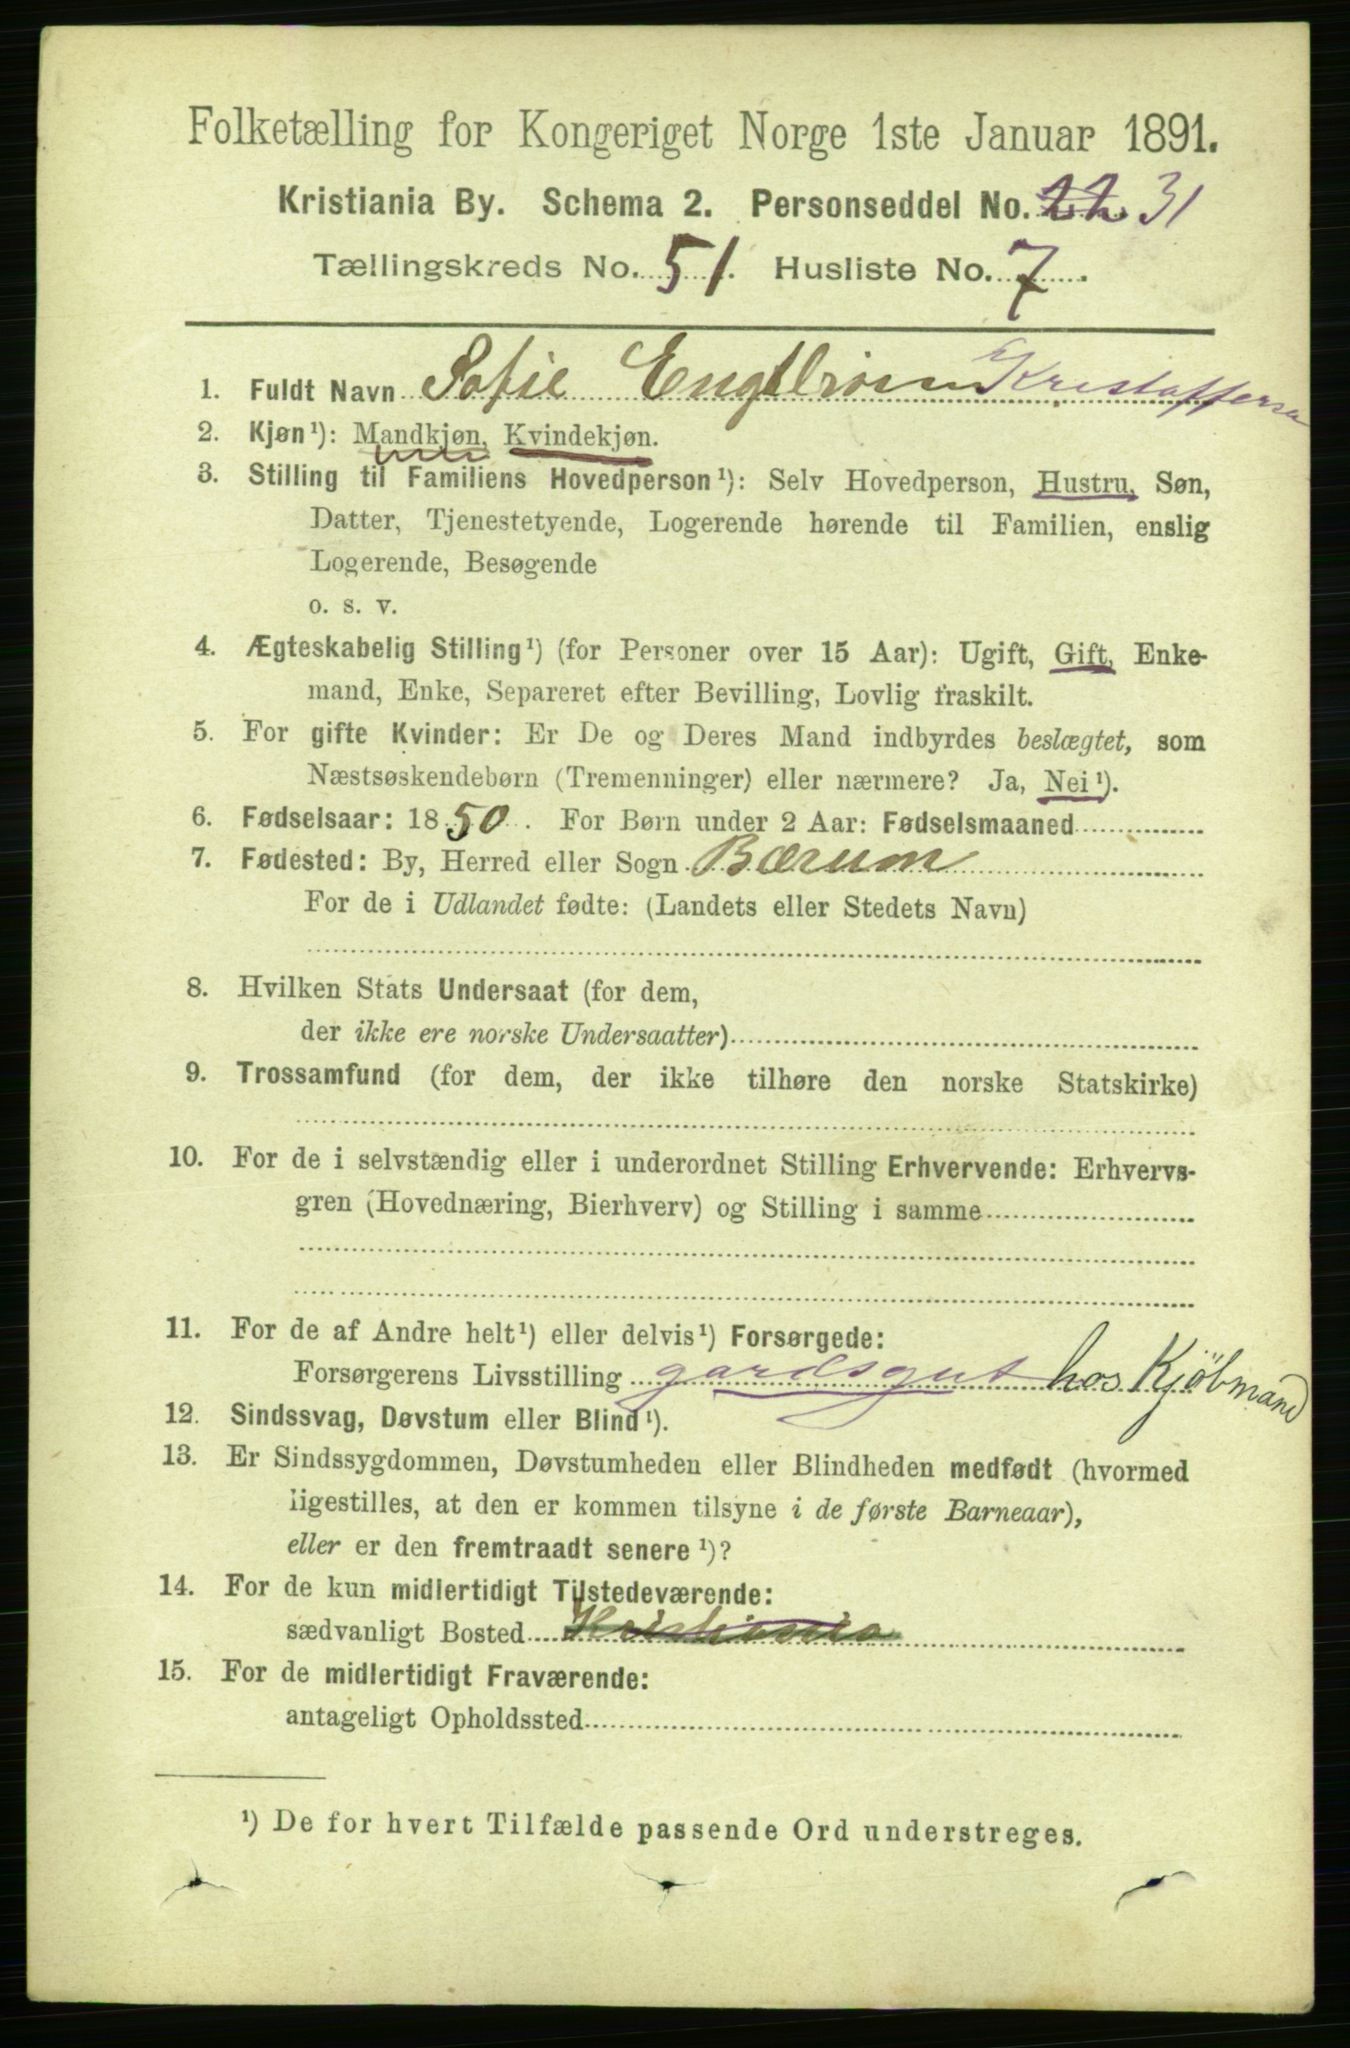 Folketælling for Kongeriget Norge 1ste Januar 1891.
Kristiania By. Schema 2. Personseddel No. 22. 31
Tællingskreds No. 51. Husliste No. 7.
1. Fuldt Navn Sofie Engstrøm Kristoffersen
2. Kjøn¹): Mandkjøn, Kvindekjøn.
3. Stilling til Familiens Hovedperson¹): Selv Hovedperson, Hustru, Søn,
Datter, Tjenestetyende, Logerende hørende til Familien, enslig
Logerende, Besøgende
o. s. v.
4. Ægteskabelig Stilling¹) (for Personer over 15 Aar): Ugift, Gift, Enke-
mand, Enke, Separeret efter Bevilling, Lovlig fraskilt.
5. For gifte Kvinder: Er De og Deres Mand indbyrdes beslægtet, som
Næstsøskendebørn (Tremenninger) eller nærmere? Ja, Nei¹).
6. Fødselsaar: 1850. For Børn under 2 Aar: Fødselsmaaned
7. Fødested: By, Herred eller Sogn Bærum
For de i Udlandet fødte: (Landets eller Stedets Navn)
8. Hvilken Stats Undersaat (for dem,
der ikke ere norske Undersaatter)
9. Trossamfund (for dem, der ikke tilhøre den norske Statskirke)
10. For de i selvstændig eller i underordnet Stilling Erhvervende: Erhvervs-
gren (Hovednæring, Bierhverv) og Stilling i samme
11. For de af Andre helt¹) eller delvis¹) Forsørgede:
Forsørgerens Livsstilling gardsgut hos Kjöbmand
12. Sindssvag, Døvstum eller Blind¹).
13. Er Sindssygdommen, Døvstumheden eller Blindheden medfødt (hvormed
ligestilles, at den er kommen tilsyne i de første Barneaar),
eller er den fremtraadt senere¹)?
14. For de kun midlertidigt Tilstedeværende:
sædvanligt Bosted Kristiania
15. For de midlertidigt Fraværende:
antageligt Opholdssted
¹) De for hvert Tilfælde passende Ord understreges.